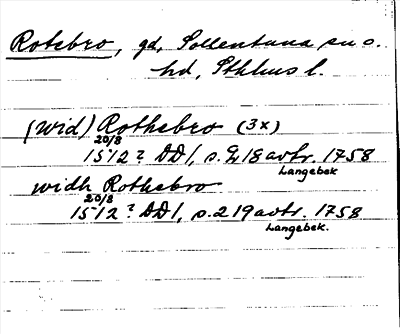 Rotebro, gd, Sollentuna sn o.
hd, Sthlms l.
(wid) Rothebro (3x)
20/8
1512? DD 1, s. 218 avtr. 1758
Langebek
widh Rothebro
20/8
1512? DD 1, s. 219 avtr. 1758
Langebek.